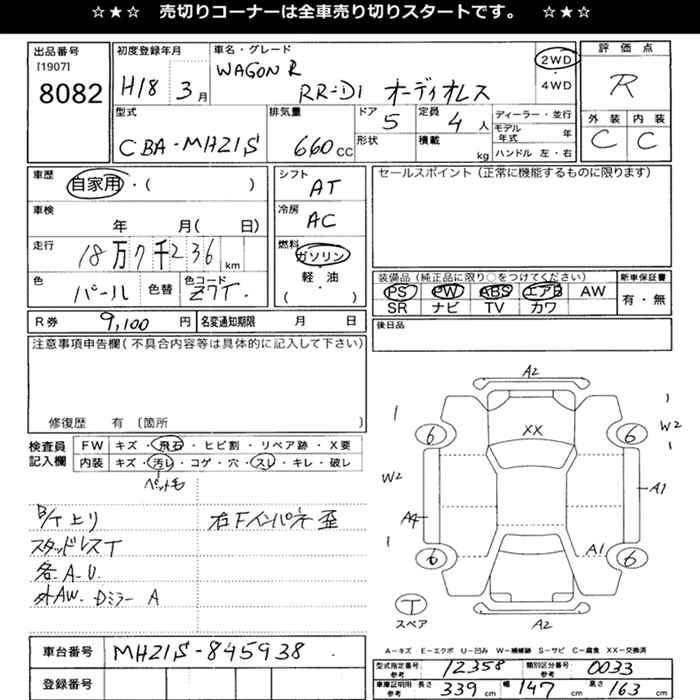 ☆★☆ 売切りコーナーは全車売り切りスタートです。 ☆★☆
出品番号
[1907]
8082
初度登録年月
H18 3月
車名・グレード
WAGON R
RR-DI オーディオレス
2WD
・
4WD
評価点
R
外装 内装
C C
型式
CBA-MH21S
排気量
660 CC
ドア
5
形状
定員
4 人
積載
kg
ディーラー・並行
モデル年式 年
ハンドル 左・右
車歴
自家用・( )
車検
年 月( 日)
走行
18万7千236 km
色
パール
色替
色コード
Z7T.
シフト
AT
冷房
AC
燃料
ガソリン
・
軽油
( )
セールスポイント(正常に機能するものに限ります)
装備品(純正品に限り○をつけてください)
PS PW ABS エアB AW
SR ナビ TV カワ
新車保証書
有・無
R券 9,100 円
名変通知期限 月 日
後日品
注意事項申告欄(不具合内容等は具体的に記入して下さい)
修復歴 有 〔箇所 〕
検査員
記入欄
FW キズ・飛石・ヒビ割・リペア跡・X要
内装 キズ・汚レ・コゲ・穴・スレ・キレ・破レ
ペット毛
B/T上リ
スタッドレスT
各A.U.
外AW. Dミラー A
右Fインパネ歪
A2
XX
6 6
W2
W2
A4
A1
A1
6 6
T
スペア
A2
A-キズ E-エクボ U-凹み W-補修跡 S-サビ C-腐食 XX-交換済
車台番号 MH21S-845938
登録番号
型式指定番号
参考
12358
類別区分番号
参考
0033
車庫証明用
参考
長さ 339 cm 幅 147 cm 高さ 163 cm